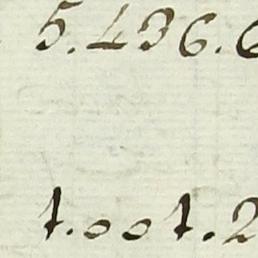 5.436.6
1.001.2